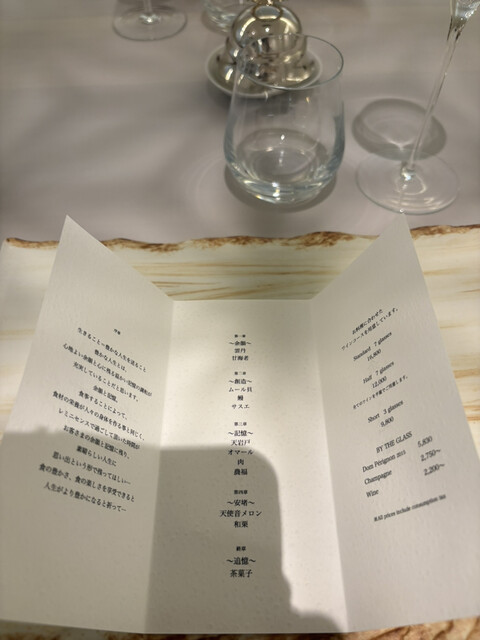 序章
生きること＝豊かな人生を送ること
豊かな人生とは、
心地よい余韻と心に残る温かい記憶の調和が
充実していることだと思います。
余韻と記憶。
食事することによって、
食材の栄養が人々の身体を作る事と同じく、
レミニセンスで過ごして頂いた時間が
お客さまの余韻と記憶に残り、
素晴らしい人生に
思い出という形で残ってほしい…
食の豊かさ、食の楽しさを享受できると
人生がより豊かになると祈って～
第一章
～余韻～
雲丹
甘海老
第二章
～創造～
ムール貝
鰻
サスエ
第三章
～記憶～
天岩戸
オマール
肉
農福
第四章
～安堵～
天使音メロン
和栗
終章
～追憶～
茶菓子
お料理に合わせた
ワインコースを用意しています。
Standard 7 glasses
19,800
Half 7 glasses
12,000
Short 5 glasses
9,800
BY THE GLASS
Dom Pérignon 5,830
Champagne 2,750~
Wine 2,200~
※All prices include consumption tax